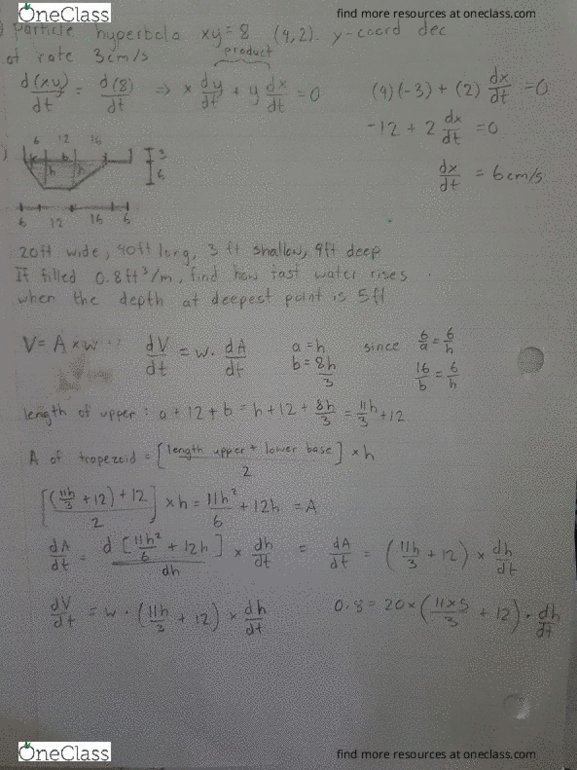 OneClass
find more resources at oneclass.com
Particle hyperbola xy = 8 (4,2). y-coord dec
at rate 3cm/s
product
d(xy)/dt = d(8)/dt ⇒ x dy/dt + y dx/dt = 0
(4)(-3) + (2) dx/dt = 0
-12 + 2 dx/dt = 0
dx/dt = 6cm/s
6 12 16
h h
3
6
6 12 16 6
20ft wide, 40ft long, 3 ft shallow, 9ft deep
If filled 0.8ft³/m, find how fast water rises
when the depth at deepest point is 5ft
V = A × w
dV/dt = w. dA/dt
a = h
b = 8h/3
since 6/a = 6/h
16/b = 6/h
length of upper : a + 12 + b = h + 12 + 8h/3 = 11h/3 + 12
A of tropezoid = [length upper + lower base / 2] × h
[(11h/3 + 12) + 12 / 2] × h = 11h²/6 + 12h = A
dA/dt = d [11h²/6 + 12h]/dh × dh/dt = dA/dt = (11h/3 + 12) × dh/dt
dV/dt = w · (11h/3 + 12) × dh/dt
0.8 = 20 × (11×5/3 + 12) · dh/dt
OneClass
find more resources at oneclass.com